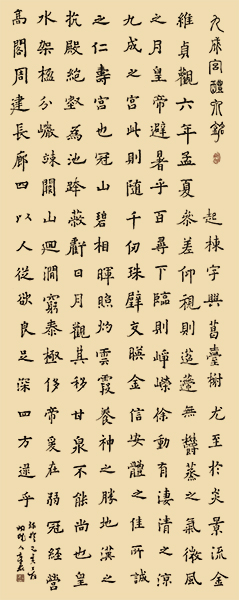 九成宮醴泉銘
維貞觀六年孟夏
之月皇帝避暑乎
九成之宮此則隨
之仁壽宮也冠山
抗殿絕壑為池跨
水架楹分巖竦闕
高閣周建長廊四
起棟宇興葛臺榭
參差仰視則迢遰
百尋下臨則崢嶸
千仞珠壁交暎金
碧相暉照灼雲霞
蔽虧日月觀其移
山迴澗窮泰極侈
以人從欲良足深
尤至於炎景流金
無鬱蒸之氣微風
徐動有淒清之涼
信安體之佳所誠
養神之勝地漢之
甘泉不能尚也皇
帝爰在弱冠經營
四方逮乎